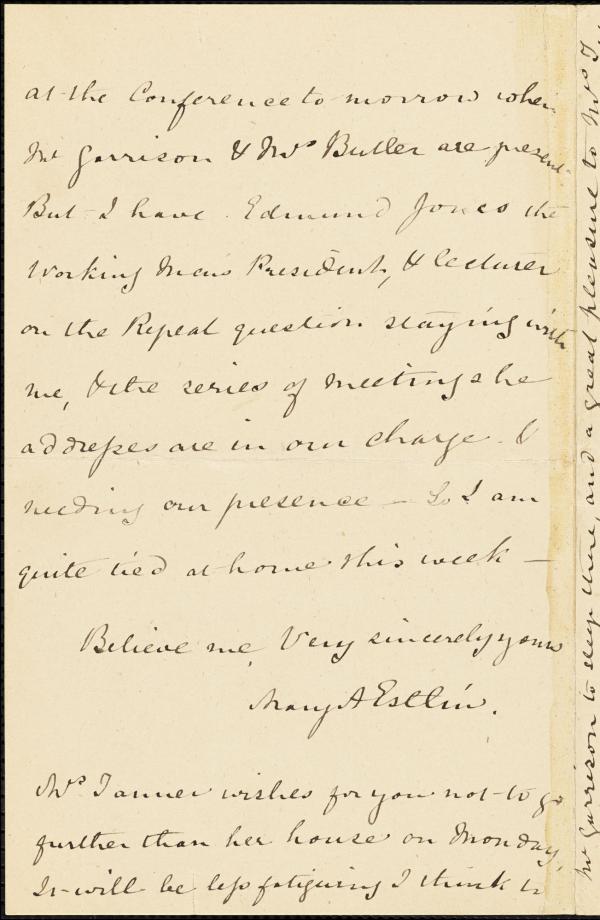 at the Conference to morrow when
Mr Garrison & Mrs Butler are present.
But I have Edmund Jones the
Working Mens President, & lecturer
on the Repeal question staying with
me, & the series of meetings he
addresses are in our charge &
needing our presence — So I am
quite tied at home this week —
Believe me, Very sincerely yours
Mary A Estlin.
Mrs Tanner wishes for you not to go
further than her house on Monday,
It will be less fatiguing I think to
Mr Garrison to sleep there, and a great pleasure to Mrs T